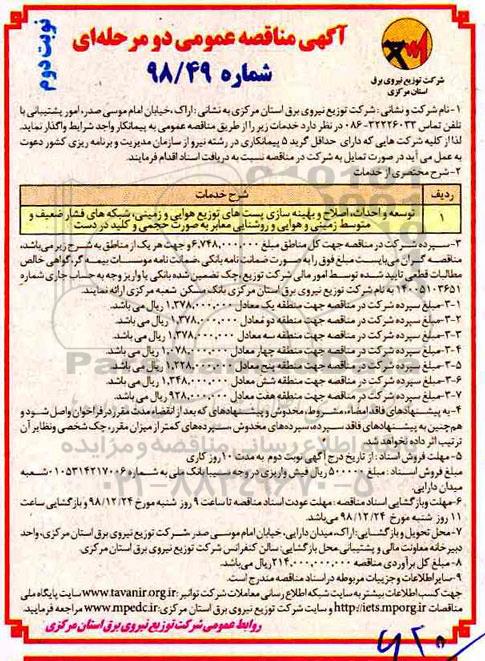 آگهی مناقصه عمومی دو مرحله‌ای
شماره ۹۸/۴۹
نوبت دوم
شرکت توزیع نیروی برق
استان مرکزی
۱-نام شرکت و نشانی : شرکت توزیع نیروی برق استان مرکزی به نشانی : اراک، خیابان امام موسی صدر، امور پشتیبانی با
تلفن تماس ۳۲۲۲۶۰۳۳-۰۸۶ در نظر دارد خدمات زیر را از طریق مناقصه عمومی به پیمانکار واجد شرایط واگذار نماید.
لذا از کلیه شرکت هایی که دارای حداقل گرید ۵ پیمانکاری در رشته نیرو از سازمان مدیریت و برنامه ریزی کشور دعوت
به عمل می آید در صورت تمایل به شرکت در مناقصه نسبت به دریافت اسناد اقدام فرمایند.
۲-شرح مختصری از خدمات
ردیف شرح خدمات
۱ توسعه و احداث، اصلاح و بهینه سازی پست های توزیع هوایی و زمینی، شبکه های فشار ضعیف و
متوسط زمینی و هوایی و روشنایی معابر به صورت حجمی و کلید در دست
۳-سپرده شرکت در مناقصه جهت کل مناطق مبلغ ۶,۷۴۸,۰۰۰,۰۰۰ و جهت هر یک از مناطق به شرح زیر می‌باشد،
مناقصه گران می‌بایست مبلغ فوق را به صورت ضمانت نامه بانکی، ضمانت نامه موسسات بیمه گر، گواهی خالص
مطالبات قطعی تایید شده توسط امور مالی شرکت توزیع، چک تضمین شده بانکی یا واریز وجه به حساب جاری شماره
۱۴۰۰۵۱۰۳۶۵۱ به نام شرکت توزیع نیروی برق استان مرکزی بانک مسکن شعبه مرکزی ارائه نمایند.
۳-۱-مبلغ سپرده شرکت در مناقصه جهت منطقه یک معادل ۱,۳۷۸,۰۰۰,۰۰۰ ریال می باشد.
۳-۲-مبلغ سپرده شرکت در مناقصه جهت منطقه دو معادل ۱,۳۷۸,۰۰۰,۰۰۰ ریال می باشد.
۳-۳-مبلغ سپرده شرکت در مناقصه جهت منطقه سه معادل ۱,۳۷۸,۰۰۰,۰۰۰ ریال می باشد.
۳-۴-مبلغ سپرده شرکت در مناقصه جهت منطقه چهار معادل ۱,۰۷۸,۰۰۰,۰۰۰ ریال می باشد.
۳-۵-مبلغ سپرده شرکت در مناقصه جهت منطقه پنج معادل ۱,۲۲۸,۰۰۰,۰۰۰ ریال می باشد.
۳-۶-مبلغ سپرده شرکت در مناقصه جهت منطقه شش معادل ۱,۳۴۸,۰۰۰,۰۰۰ ریال می باشد.
۳-۷-مبلغ سپرده شرکت در مناقصه جهت منطقه هفت معادل ۹۲۸,۰۰۰,۰۰۰ ریال می باشد.
۴-به پیشنهادهای فاقد امضاء، مشروط، مخدوش و پیشنهادهای که بعد از انقضاء مدت مقرر در فراخوان واصل شود و
هم‌چنین به پیشنهادهای فاقد سپرده، سپرده‌های مخدوش، سپرده‌های کمتر از میزان مقرر، چک شخصی و نظایر آن
ترتیب اثر داده نخواهد شد.
۵-مهلت فروش اسناد : از تاریخ درج آگهی نوبت دوم به مدت ۱۰ روز کاری
مبلغ فروش اسناد : مبلغ ۵۰۰۰۰۰ ریال فیش واریزی در وجه سیبا بانک ملی به شماره ۰۱۰۵۳۱۴۲۱۷۰۰۶ شعبه
میدان دارایی.
۶-مهلت و بازگشایی اسناد مناقصه : مهلت عودت اسناد مناقصه تا ساعت ۹ روز شنبه مورخ ۹۸/۱۲/۲۴ و بازگشایی ساعت
۱۱ روز شنبه مورخ ۹۸/۱۲/۲۴ می‌باشد.
۷-محل تحویل و بازگشایی : اراک، میدان دارایی، خیابان امام موسی صدر، شرکت توزیع نیروی برق استان مرکزی، واحد
دبیرخانه معاونت مالی و پشتیبانی، محل بازگشایی: سالن کنفرانس شرکت توزیع نیروی برق استان مرکزی.
۸-مبلغ کل برآوردی مناقصه ۲۱۴,۰۰۰,۰۰۰,۰۰۰ ریال می‌باشد.
۹-سایر اطلاعات و جزییات مربوطه در اسناد مناقصه مندرج است.
جهت کسب اطلاعات بیشتر به سایت شبکه اطلاع رسانی معاملات شرکت توانیر: www.tavanir.org.ir سایت پایگاه ملی
مناقصات http://iets.mporg.ir و سایت شرکت توزیع نیروی برق استان مرکزی: www.mpedc.ir مراجعه فرمایید.
روابط عمومی شرکت توزیع نیروی برق استان مرکزی